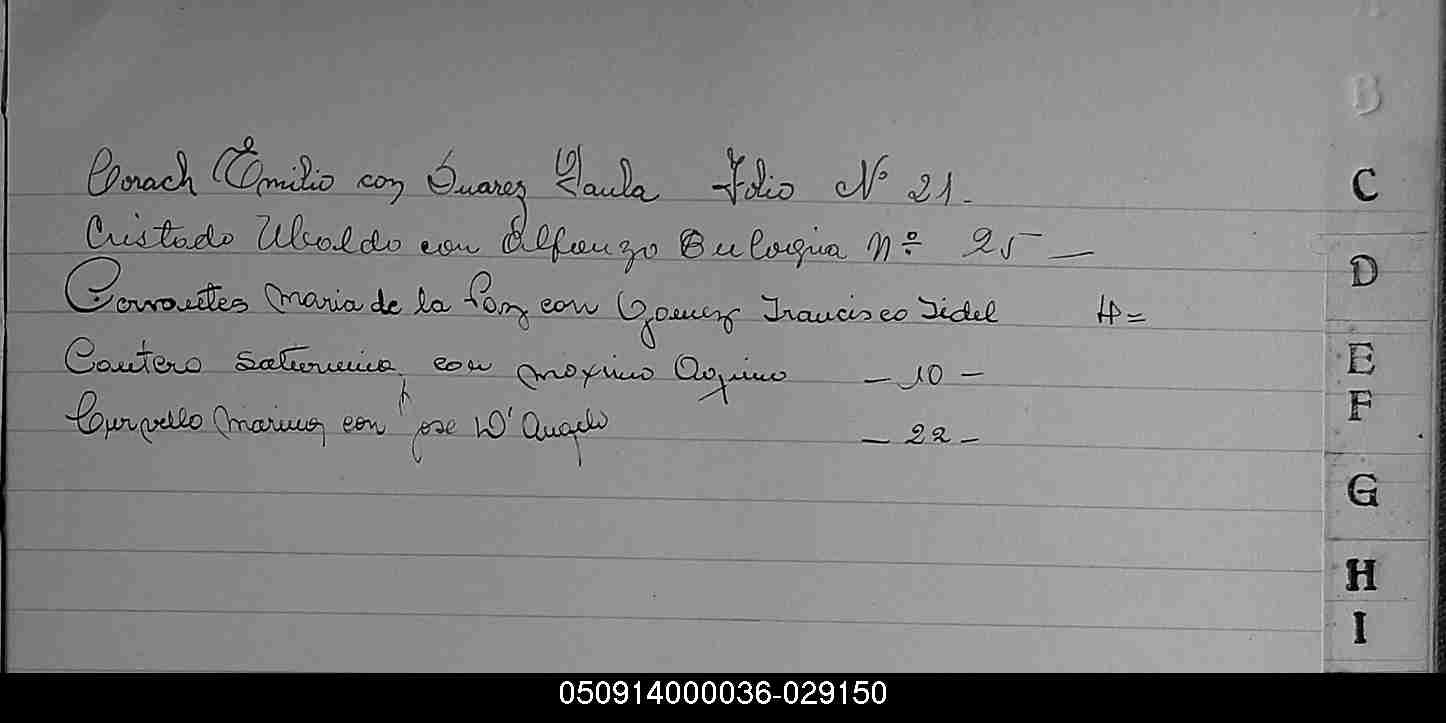 Corach Emilio con Suarez Paula Folio Nº 21.
Cristado Ubaldo con Alfonzo Eulogia Nº 25 —
Cervantes Maria de la Paz con Gomez Francisco Fidel 4=
Cantero Saturnina con Maximo Aquino — 10 —
Curvello Marina con Jose D'Angelo — 22 —
B
C
D
E
F
G
H
I
050914000036-029150